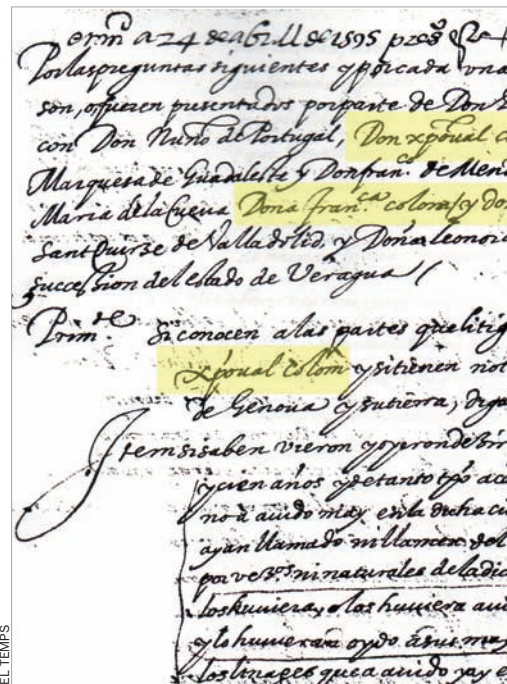 a 24 de abrill de 1595 pres
Por las preguntas siguientes y por cada vna
son, o fueren presentados por parte de Don
con Don Nuño de Portugal, Don xpoual
Marquesa de Guadaleste y Don fran.co de Men
Maria de la Cueua Doña fran.ca colom, y do
Sant Quirse de Valladolid, y Doña leonor
succession del estado de Veragua
Prim.te Si conocen a las partes que litig
xpoual colom y si tienen not
de Genoua y su tierra, diga
Item si saben vieron y oyeron dezir
y cien años y de tanto tpo aca
no à auido may en la dicha ciu
ayan llamado ni llamen del
por vez.os ni naturales de la dic
los huuiera, o los huuiera aui
y lo huuieran oydo à sus may
los linages que a auido y ay e
EL TEMPS